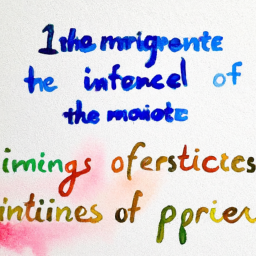 1the mrigrente
he infencel of
the maiotc
imings oferstictes
intiines of pprier